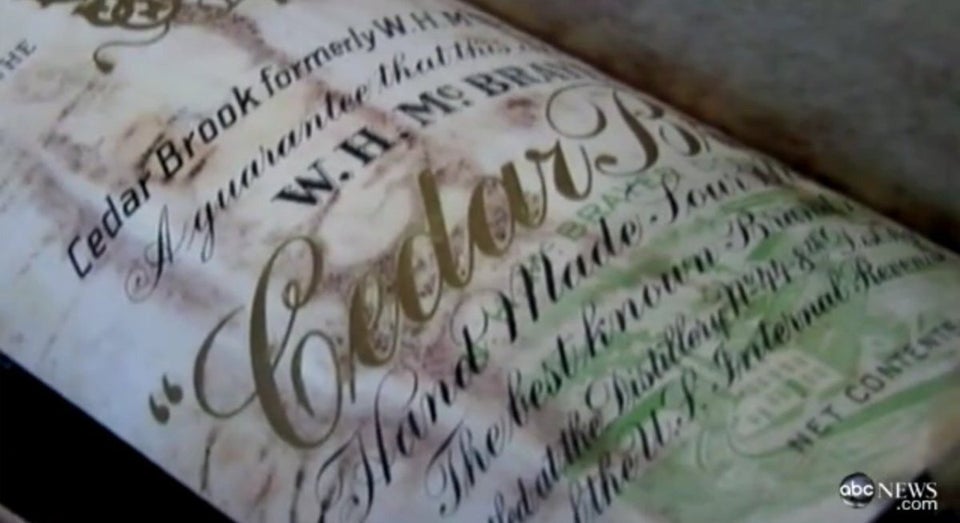 THE
Cedar Brook formerly W.H.M
A guarantee that this
W.H. Mc BRAY
"Cedar B
BRA
Hand Made Sour M
The best known Brand
led at the Distillery No 44 8th
f the U.S. Internal Reven
NET CONTENTS
abc NEWS
.com